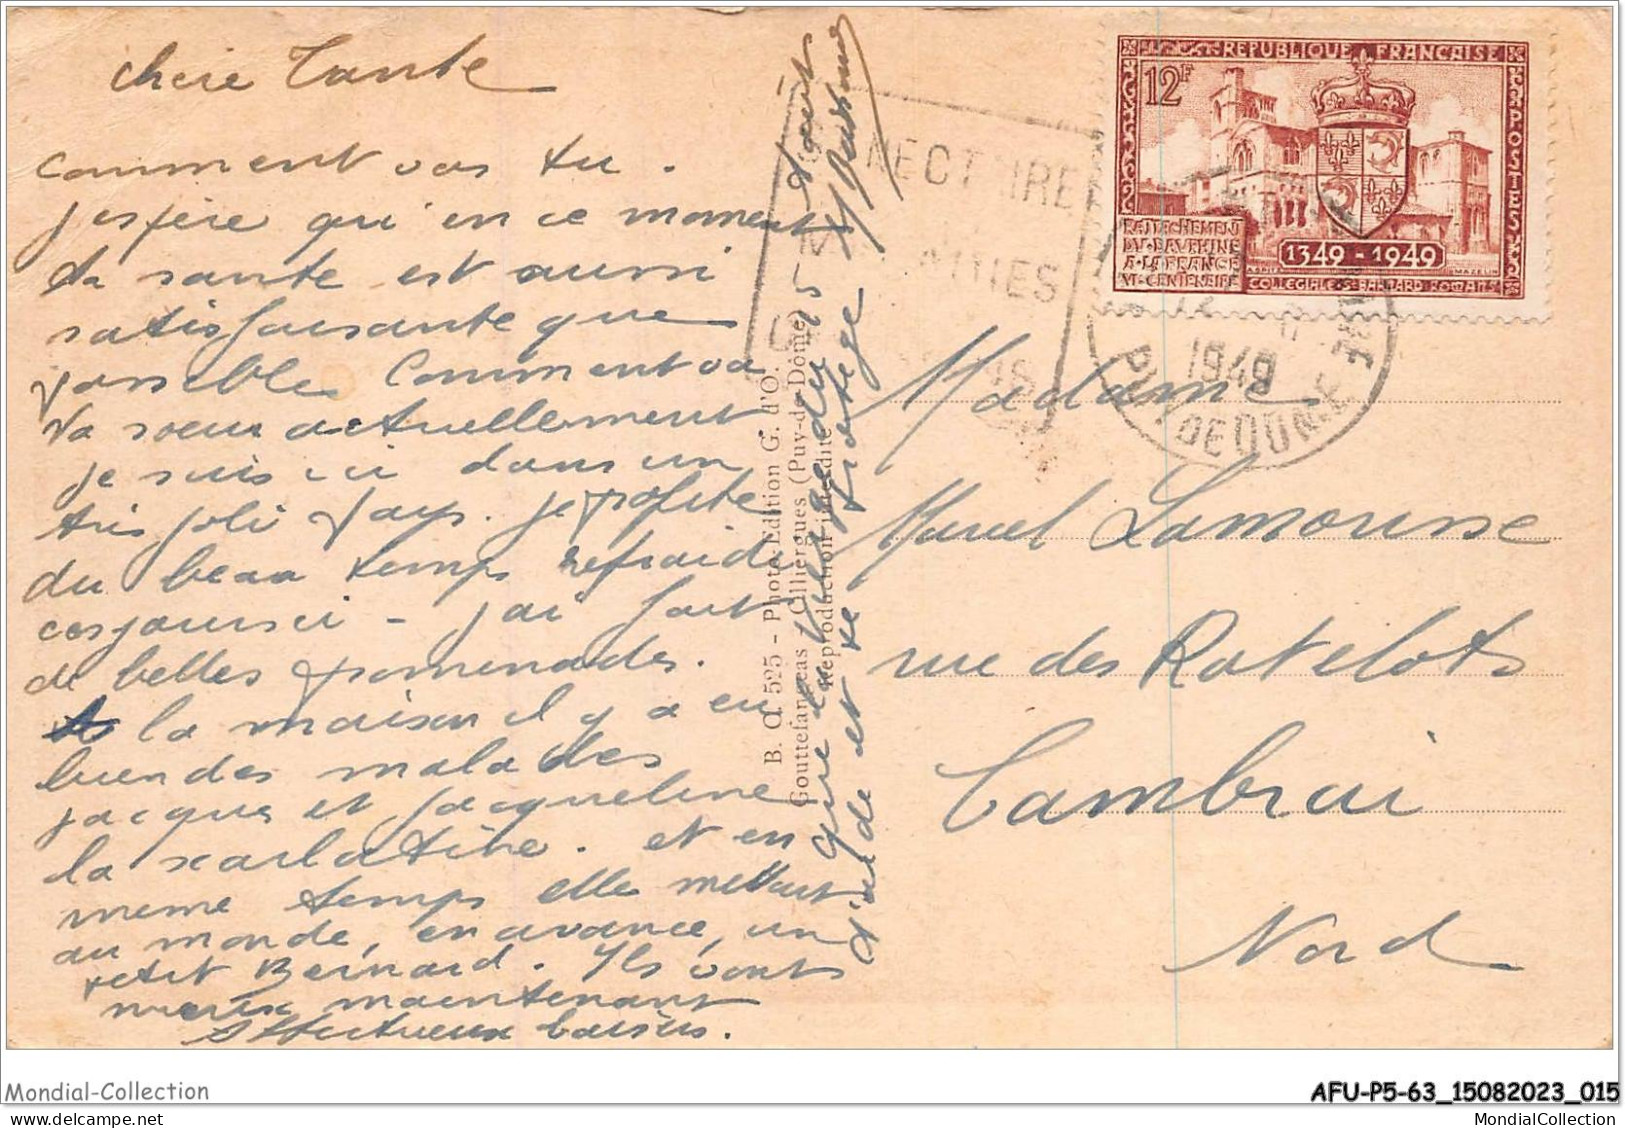 chere Tante
comment vas tu.
j'espère qu'en ce moment
ta santé est aussi
satisfaisante que
possible. Comment va
ta soeur actuellement
je suis ici dans un
très joli pays. je profite
du beau temps refroidi
ces jours ci - j'ai fait
de belles promenades.
A la maison il y a eu
bien des malades
jacques et jacqueline
la scarlatine. et en
meme temps elle mettait
au monde, en avance, un
petit Bernard. Ils vont
mieux maintenant
affectueux baisers.
B. C. 525 - Photo-Edition G. d'O.
Gouttefangeas Olliergues (Puy-de-Dôme)
Reproduction interdite
NECTAIRE
1949
PUY DE DOME
REPUBLIQUE FRANCAISE
12F
POSTES
RATTACHEMENT
DU DAUPHINE
A LA FRANCE
VI CENTENAIRE
1349-1949
COLLEGIALE S. BARNARD ROMANS
MAZELIN
Madame
Marcel Lamousse
rue des Ratelots
Cambrai
Nord
Mondial-Collection
AFU-P5-63_15082023_015
MondialCollection